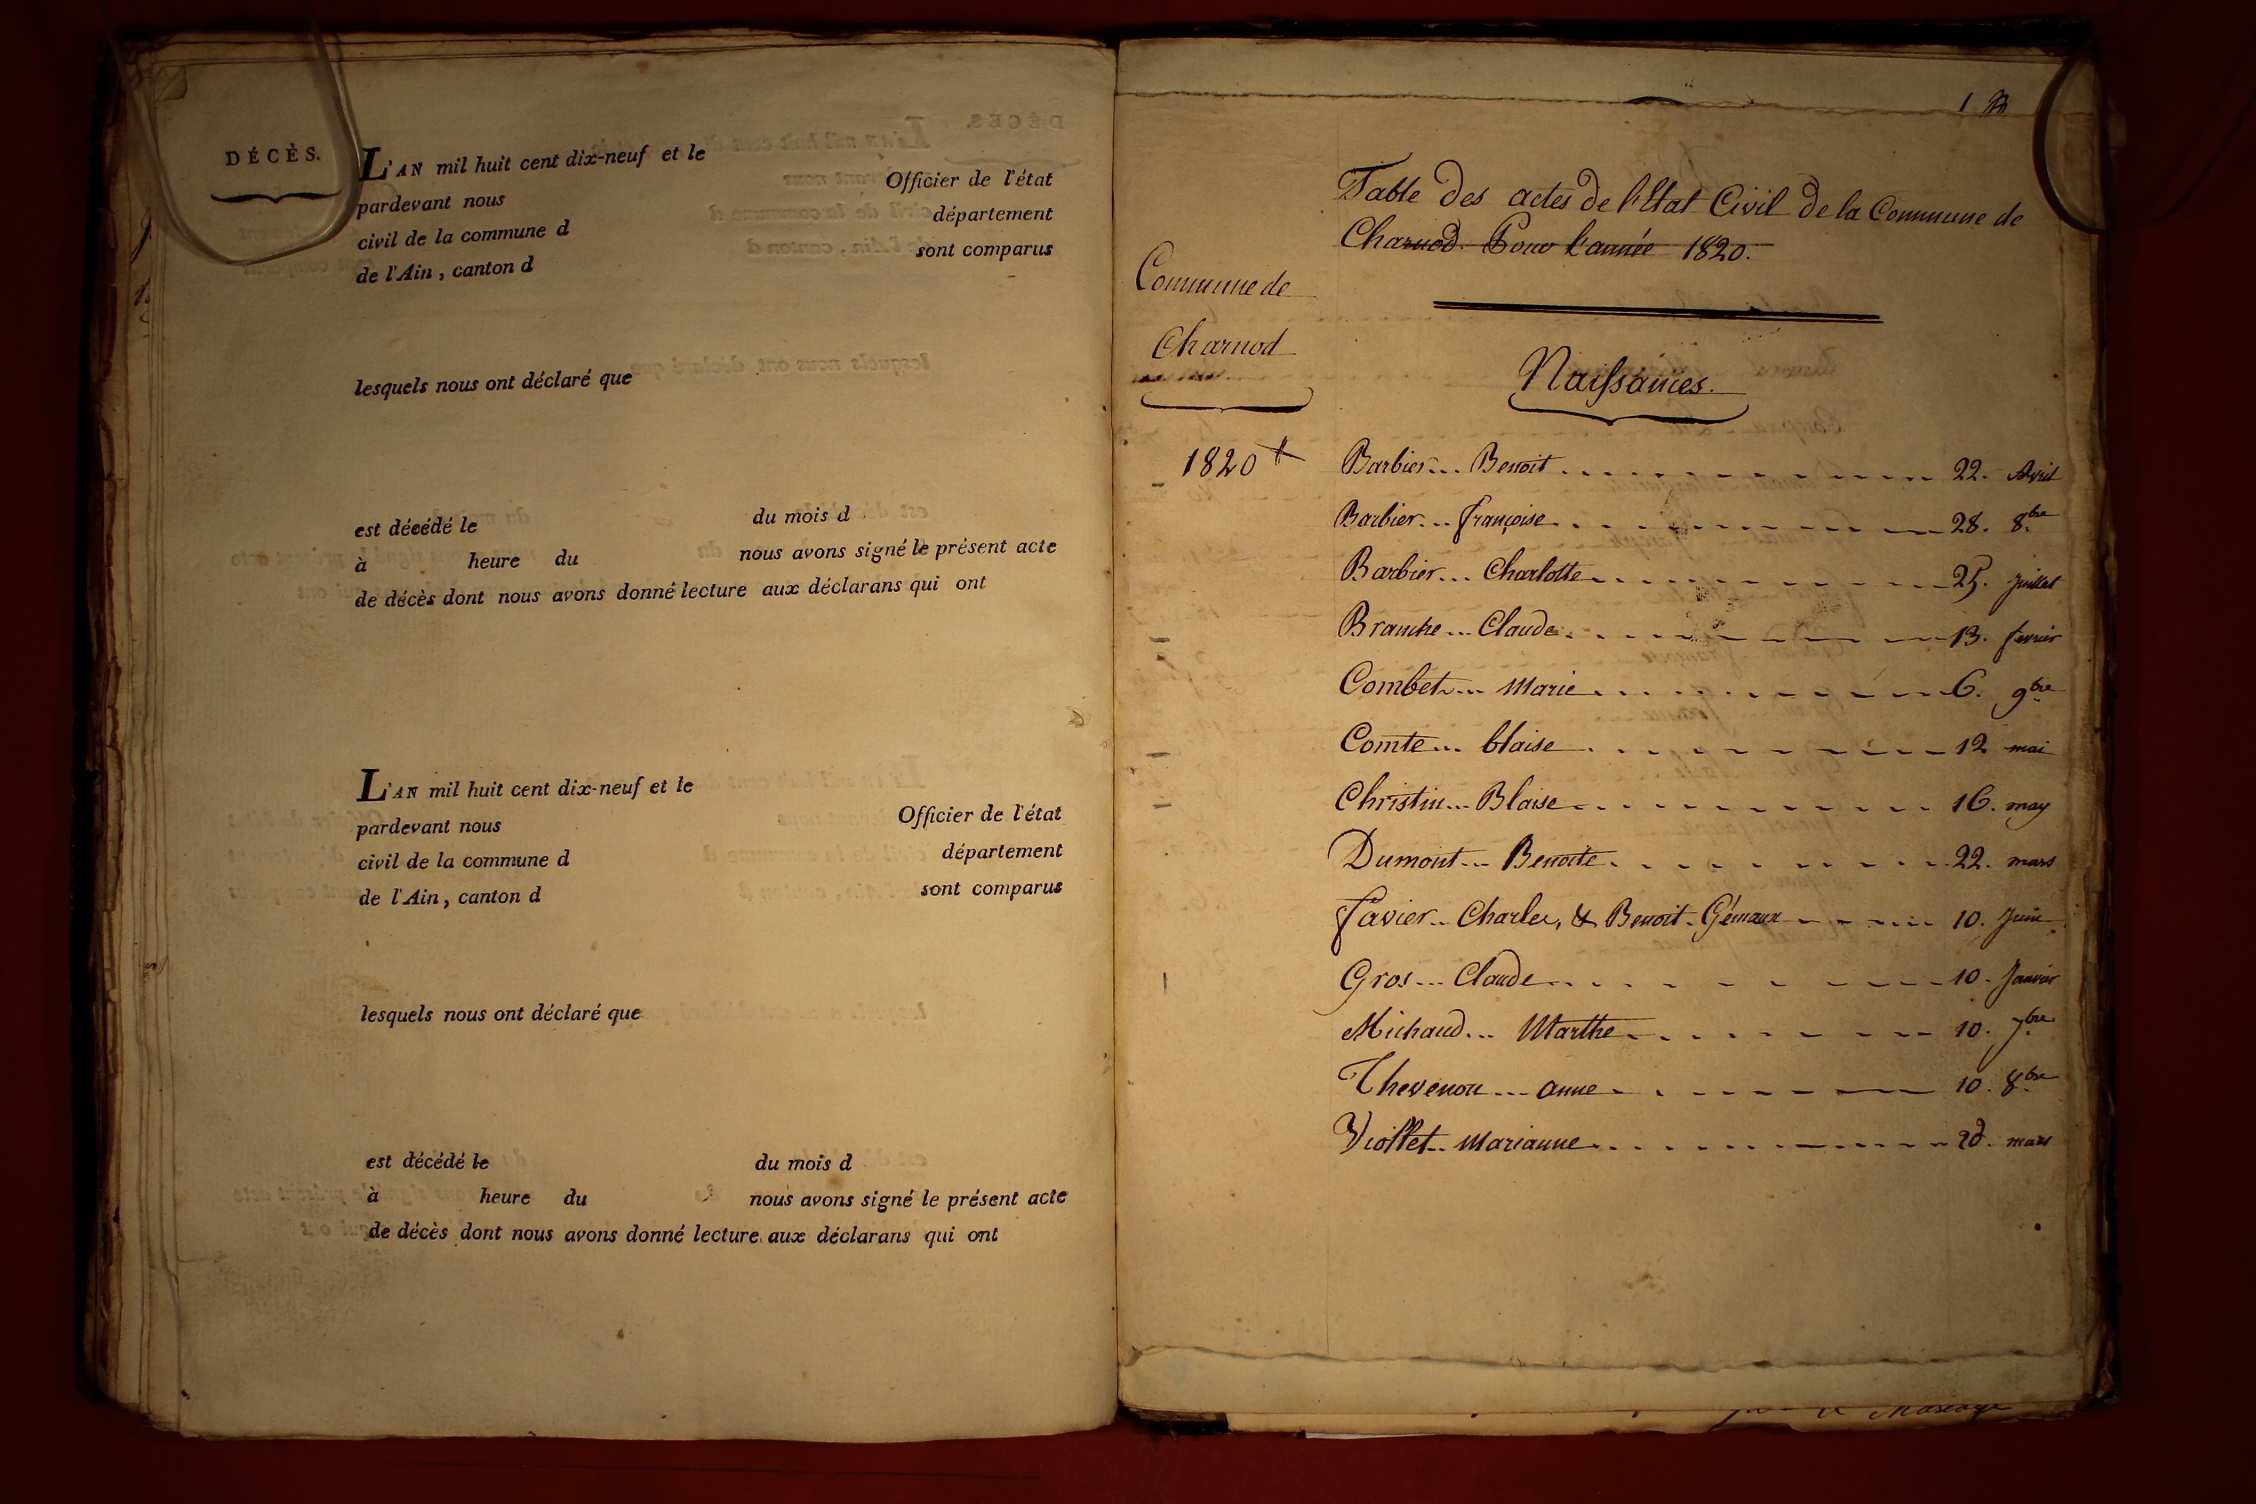 DÉCÈS.
L'AN mil huit cent dix-neuf et le
pardevant nous Officier de l'état
civil de la commune d département
de l'Ain, canton d sont comparus
lesquels nous ont déclaré que
est décédé le du mois d
à heure du nous avons signé le présent acte
de décès dont nous avons donné lecture aux déclarans qui ont
L'AN mil huit cent dix-neuf et le
pardevant nous Officier de l'état
civil de la commune d département
de l'Ain, canton d sont comparus
lesquels nous ont déclaré que
est décédé le du mois d
à heure du nous avons signé le présent acte
de décès dont nous avons donné lecture aux déclarans qui ont
1
Table Des actes de l'Etat Civil De la Commune de
Charnod. Pour l'année 1820.
Commune de
Charnod
Naissances.
1820
Barbier... Benoit 22. Avril
Barbier... françoise 28. 8bre
Barbier... Charlotte 25. Juillet
Branche... Claude 13. fevrier
Combet... Marie 6. 9bre
Comte... blaise 12 mai
Christin... Blaise 16. may
Dumont... Benoite 22. mars
favier.. Charles, & Benoit. Gémaux 10. Juin
Gros... Claude 10. Janvier
Michaud... Marthe 10. 7bre
Thevenon... anne 10. 8bre
Viollet.. Marianne mars